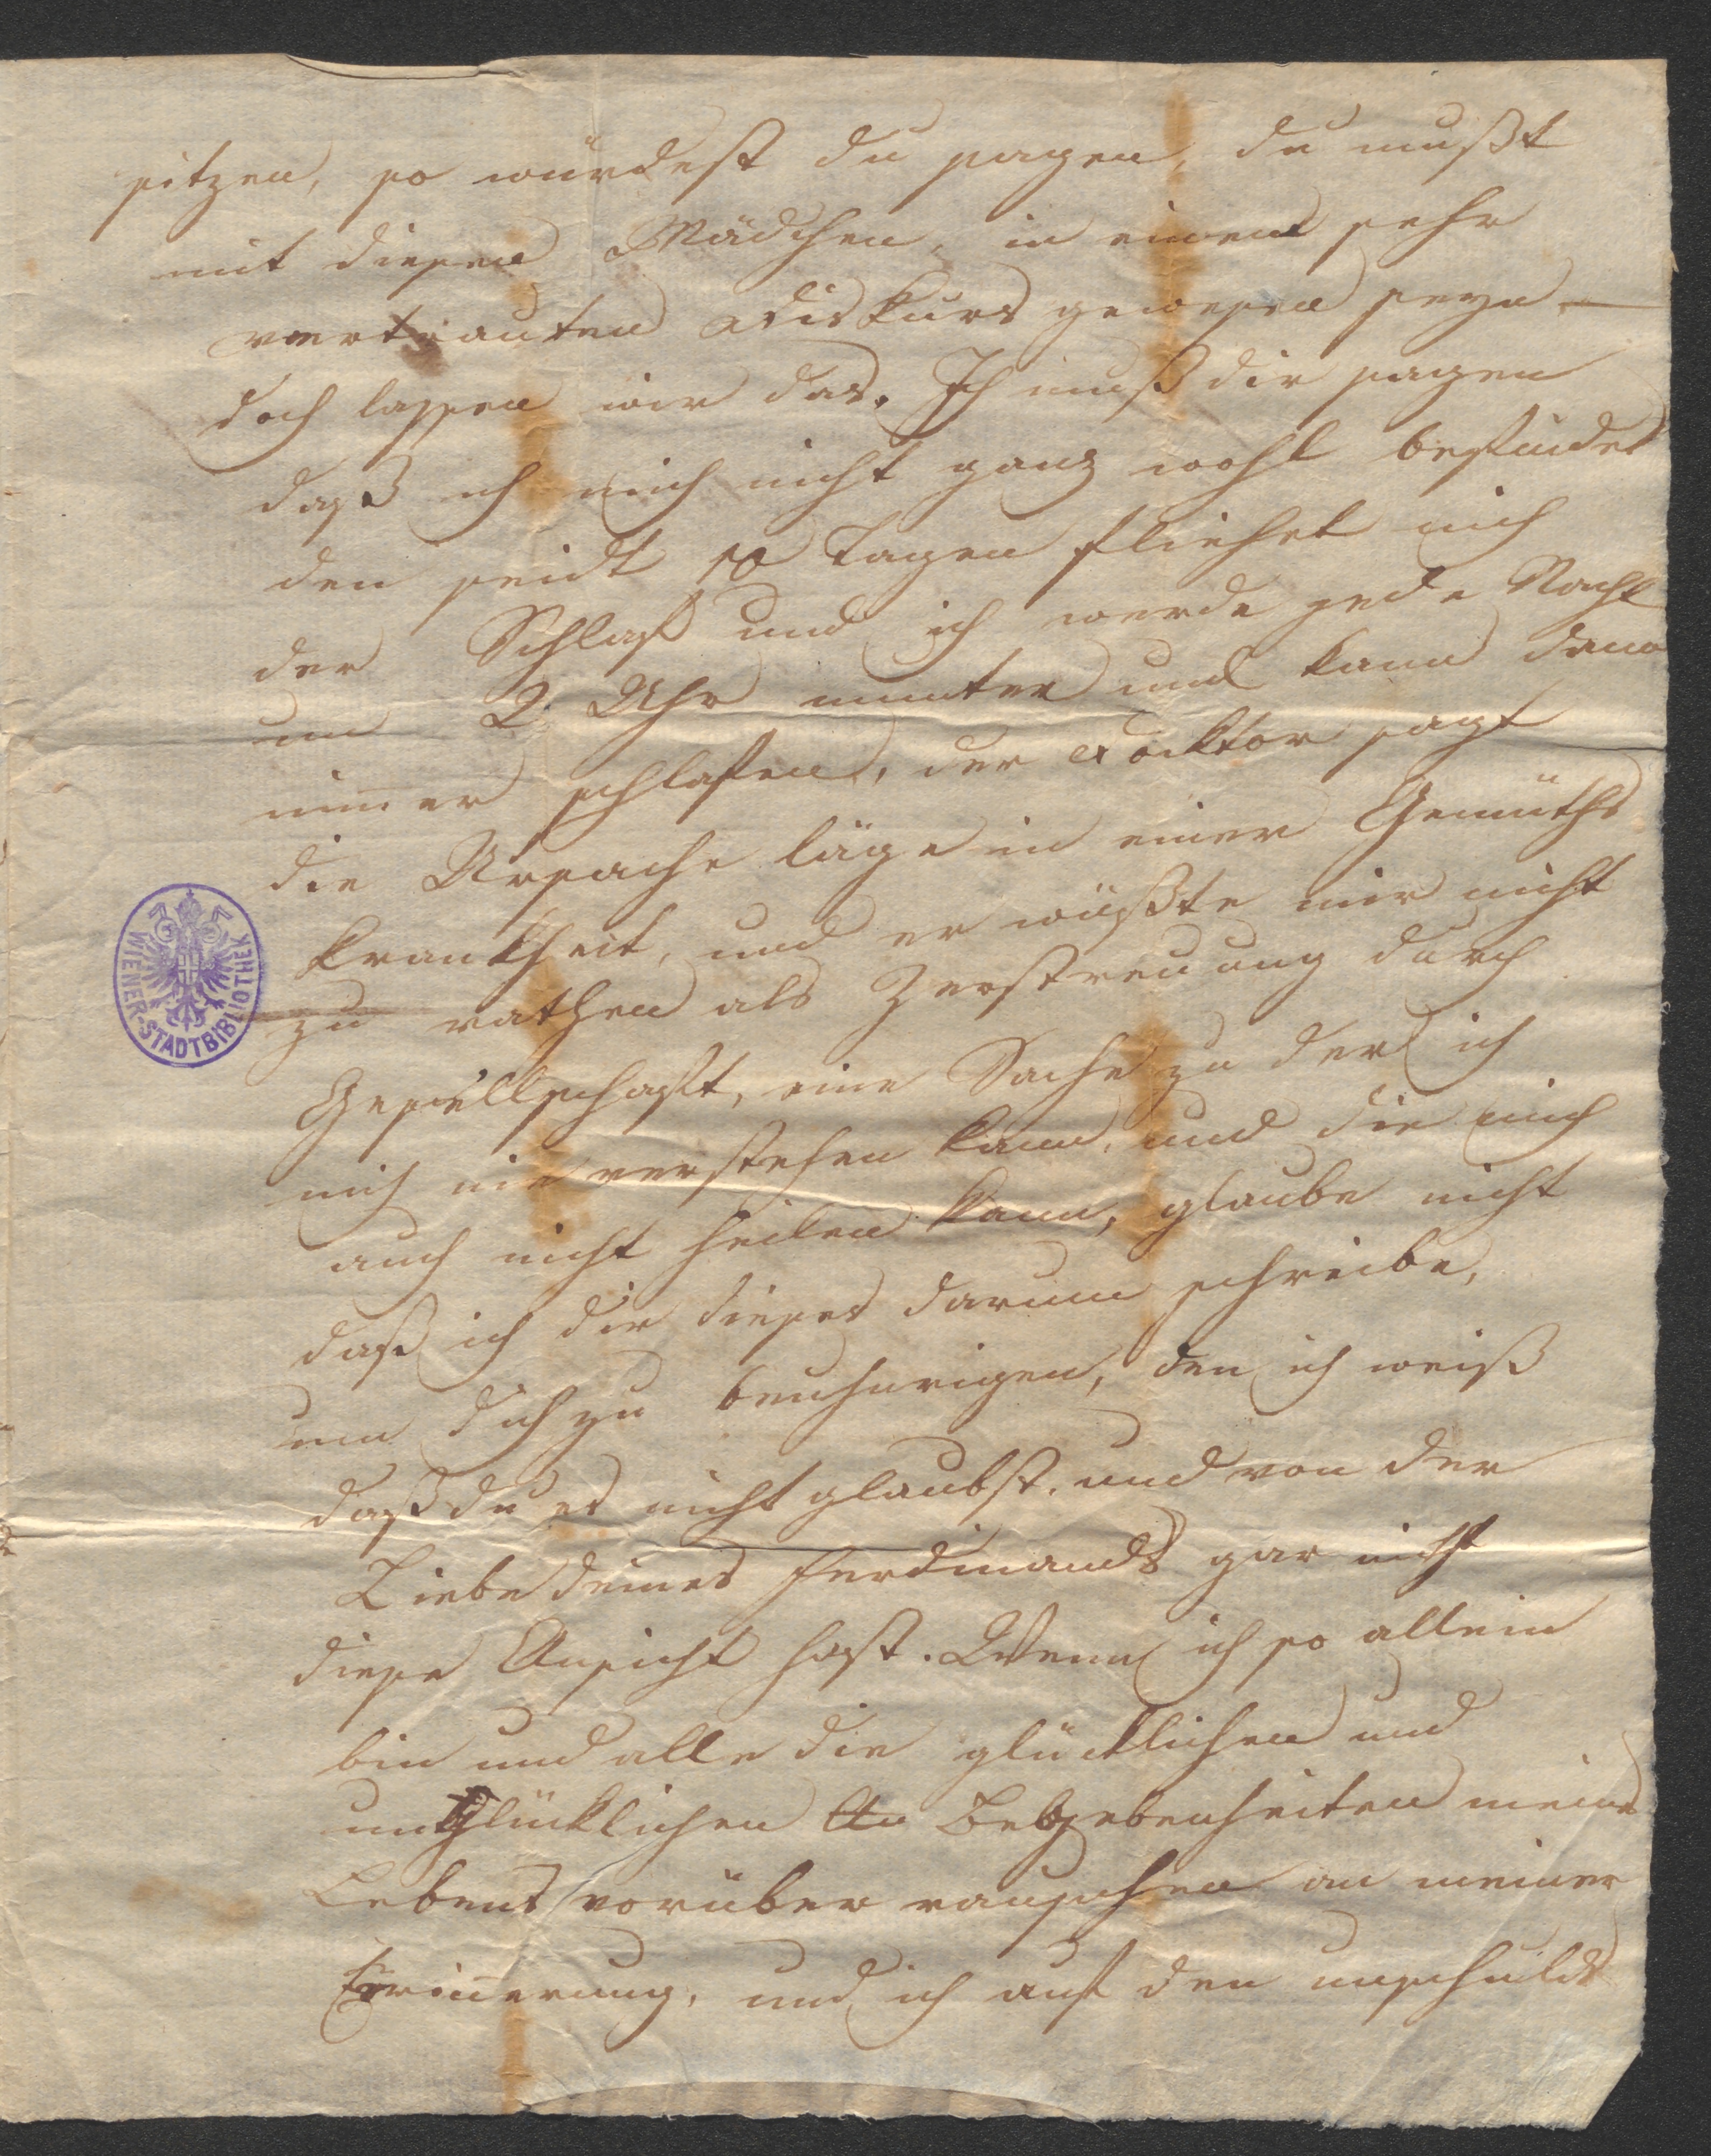 sitzen, so würdest du sagen, du mußt
mit diesen Mädchen, in einem sehr
vertrauten Diskurs gewesen seyn –
doch lassen wir das. Ich muß dir sagen
daß ich mich nicht ganz wohl befinde
den seidt 10 Tagen fliehet mich
der Schlaf und ich werde jede Nacht
um 2 Uhr munter und kann dann
nimer schlafen, der Docktor sagt
die Ursache läge in einer Gemüths
krankheit, und er wüßte mir nicht
zu rathen als Zerstreuung durch
Gesellschaft, eine Sache zu der ich
mich nie verstehen kann, und die mich
auch nicht heilen kann, glaube nicht
daß ich dir dieses darum schreibe,
um dich zu beuhnrigen, den ich weiß
daß du es nicht glaubst, und von der
Liebe deines Ferdinands gar nicht
diese Ansicht hast. Wenn ich so allein
bin und alle die glücklichen und
unglücklichen Begebenheiten meines
Lebens vorüber rauschen an meiner
Erinerung, und ich auf den unschuld
WIENER-STADTBIBLIOTHEK